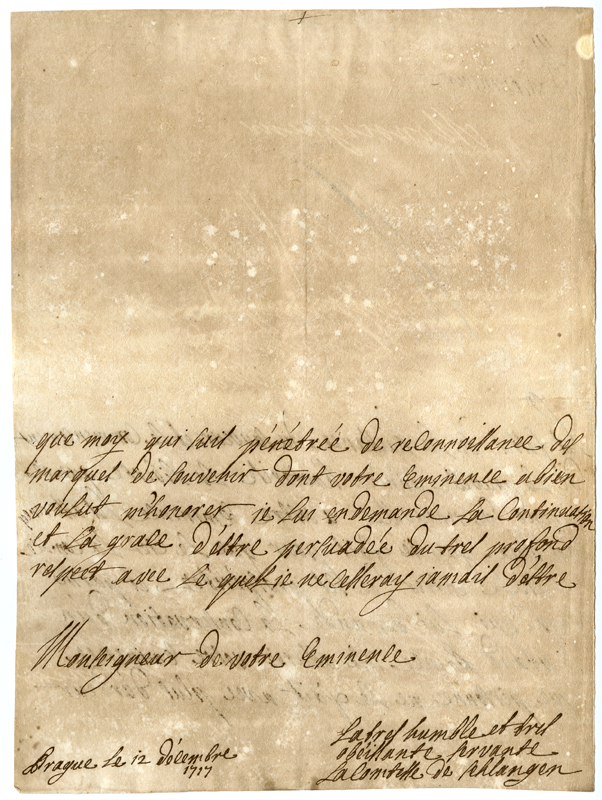 que moy qui suis pénétrée de reconnoissance des
marques de souvenir dont votre Eminence a bien
voulut m'honorer je lui en demande la Continuation
et la grace d'éttre persuadée du tres profond
respect avec le quel je ne cesseray jamais d'ettre
Monseigneur de votre Eminence
La tres humble et tres
obéissante servante
La Comtesse de Schlangen
Prague le 12 décembre
1717